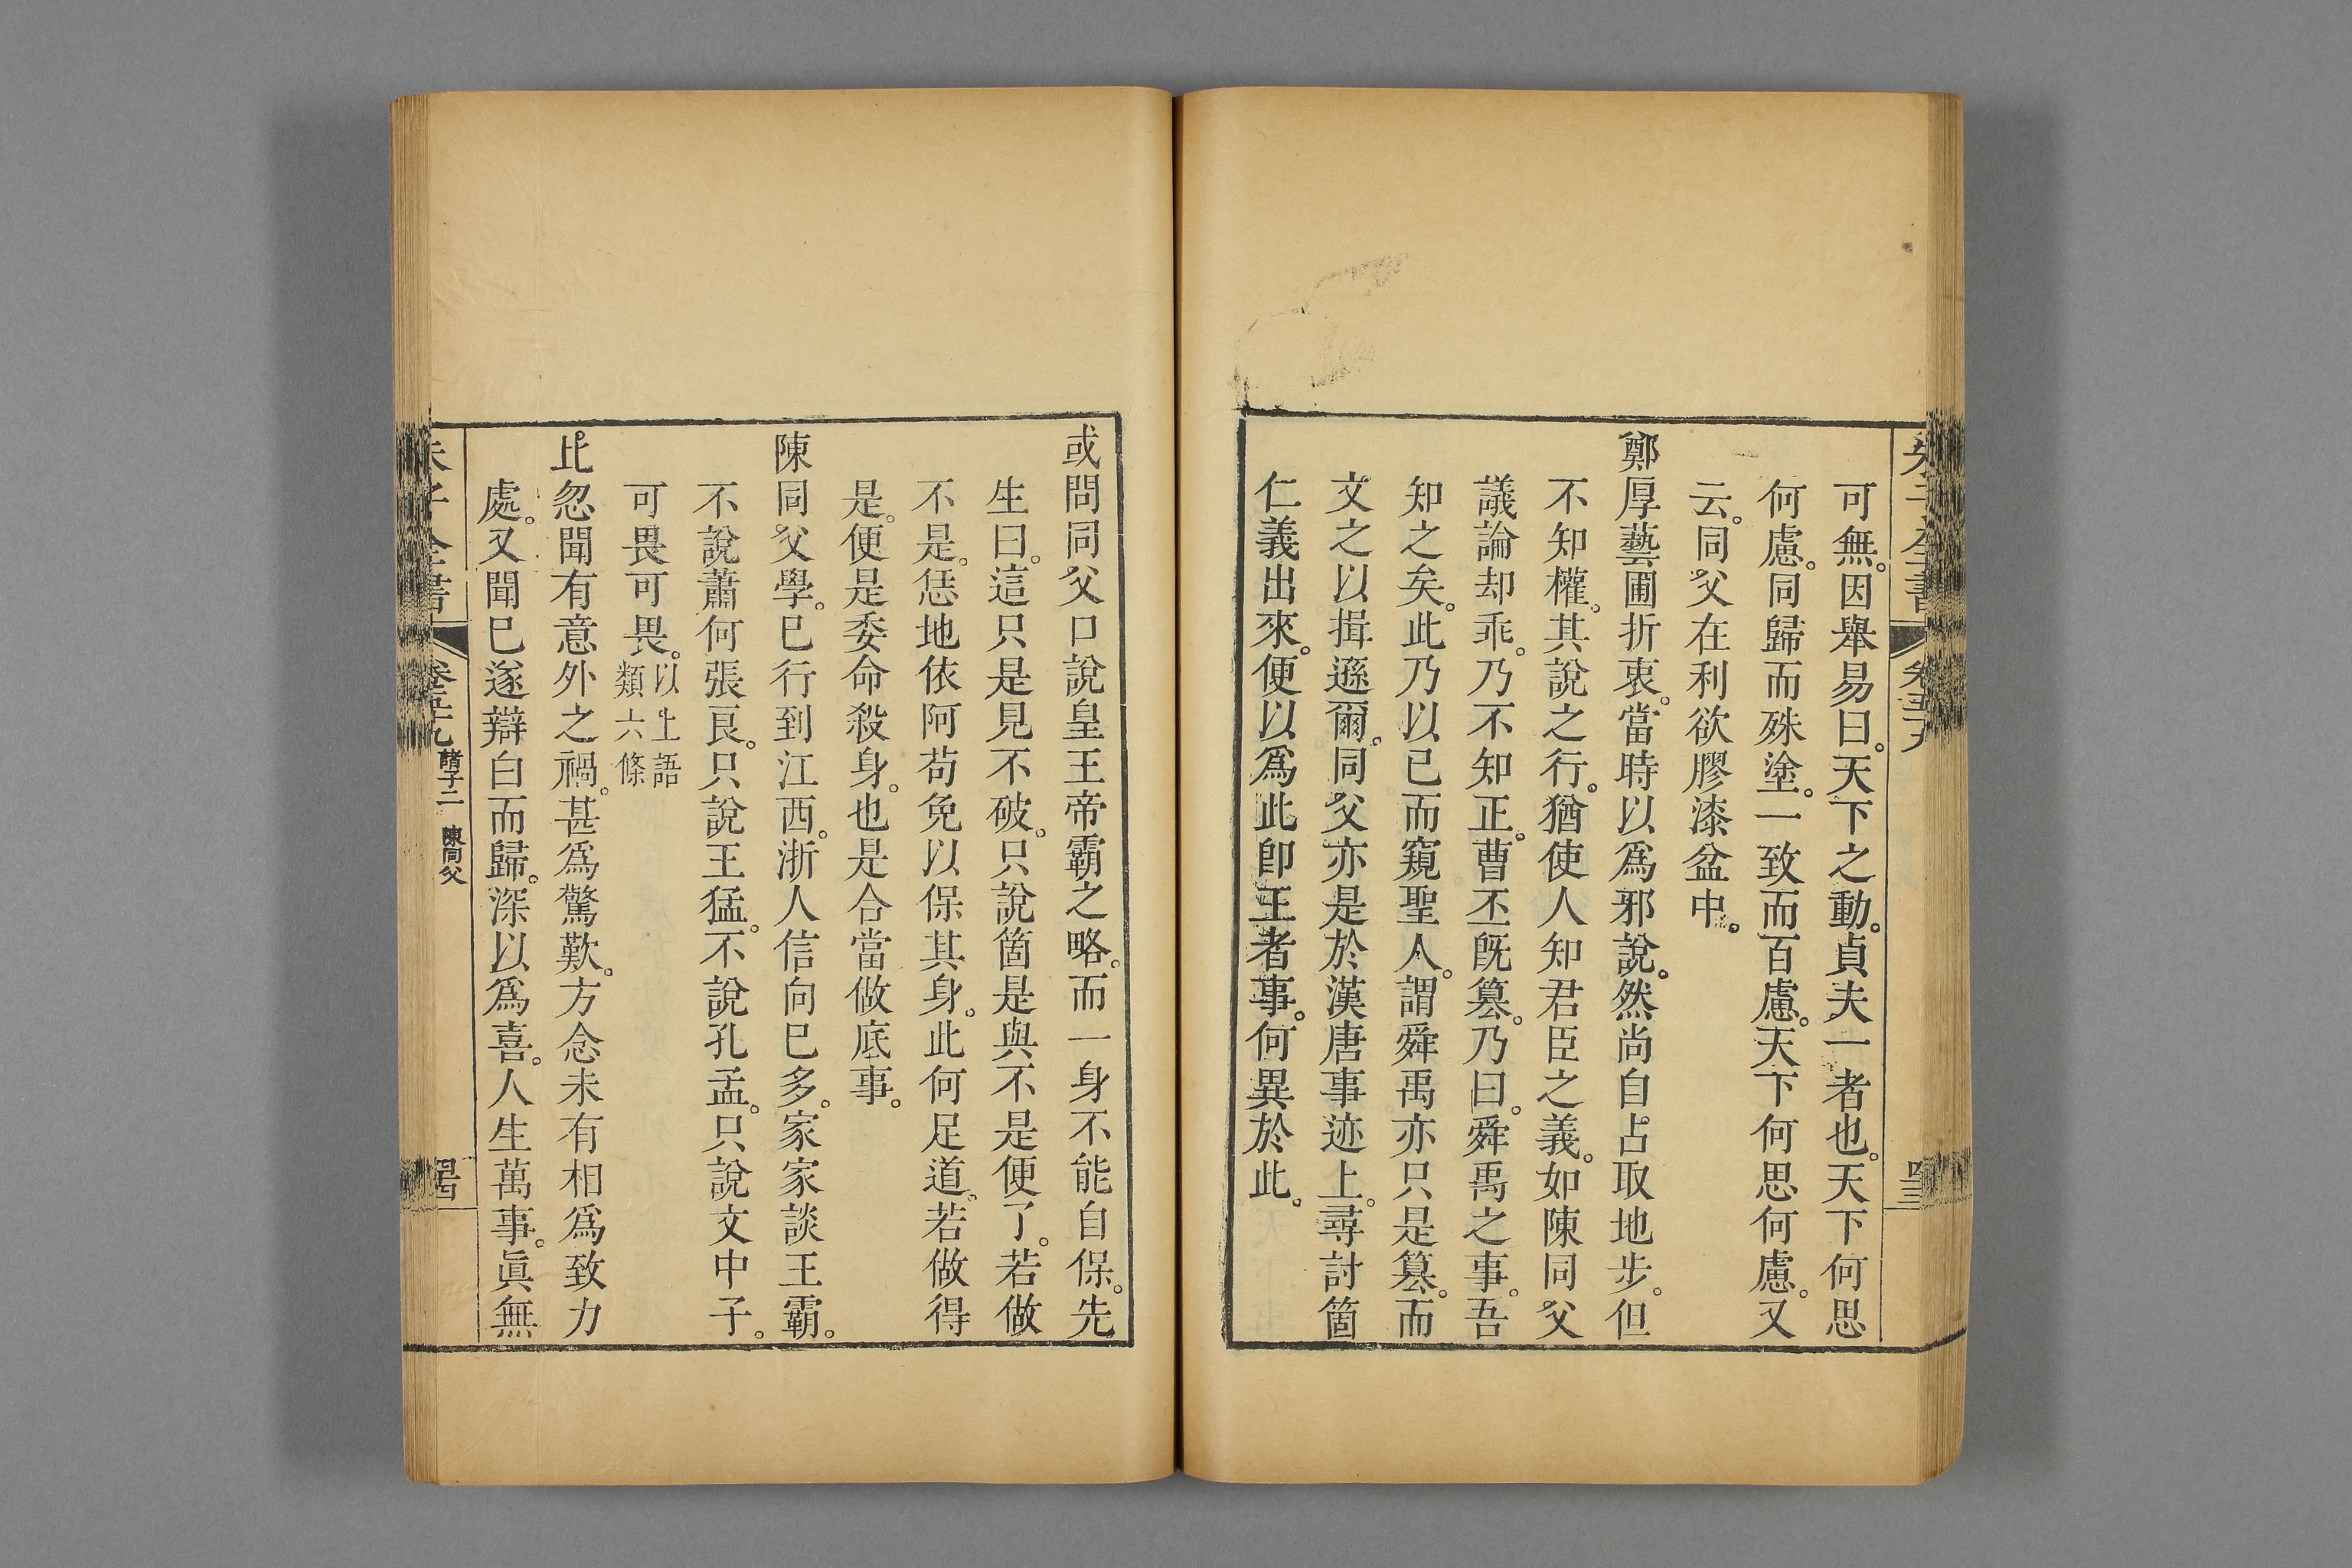 可無。因舉易曰。天下之動。貞夫一者也。天下何思
何慮。同歸而殊塗。一致而百慮。天下何思何慮。又
云。同父在利欲膠漆盆中。
鄭厚藝圃折衷。當時以爲邪說。然尚自占取地步。但
不知權。其說之行。猶使人知君臣之義。如陳同父
議論却乖。乃不知正。曹丕旣篡。乃曰。舜禹之事。吾
知之矣。此乃以已而窺聖人。謂舜禹亦只是篡。而
文之以揖遜爾。同父亦是於漢唐事迹上。尋討箇
仁義出來。便以爲此卽王者事。何異於此。
或問同父口說皇王帝霸之略。而一身不能自保。先
生曰。這只是見不破。只說箇是與不是便了。若做
不是。恁地依阿苟免以保其身。此何足道。若做得
是。便是委命殺身。也是合當做底事。
陳同父學。已行到江西。浙人信向已多。家家談王霸。
不說蕭何張良。只說王猛。不說孔孟。只說文中子。
可畏可畏。以上語類六條
比忽聞有意外之禍。甚爲驚歎。方念未有相爲致力
處。又聞已遂辯白而歸。深以爲喜。人生萬事。眞無
朱子全書
卷五十九
諸子二 陳同父